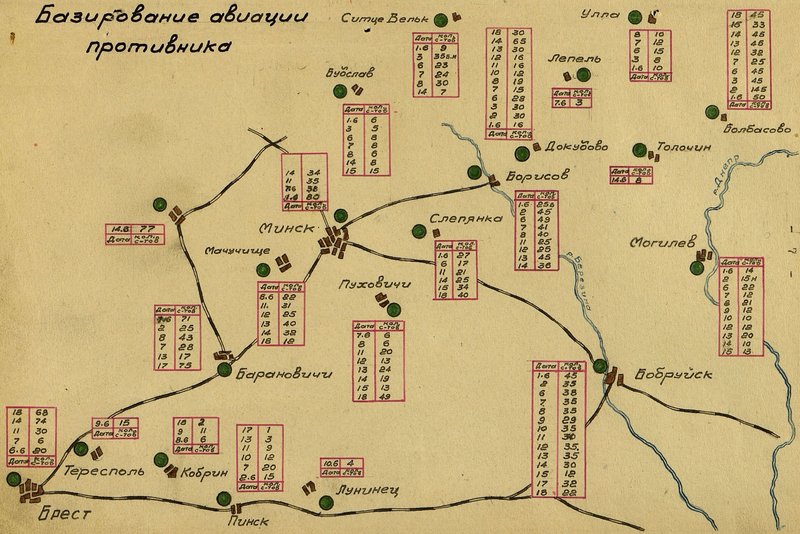 Базирование авиации
противника
Ситце Вельк
Дата кол. с-тов
1.6 9
6 23
7 24
8 30
14 7
Улла
8 10
7 12
6 15
3 8
1.6 10
Дата кол. с-тов
18 45
15 33
14 45
13 46
12 32
7 25
6 45
3 45
2 145
1.6 50
Дата кол. с-тов
Волбасово
Лепель
Дата кол. с-тов
7.6 3
18 30
14 65
13 30
12 16
11 10
10 12
8 19
7 15
6 28
3 30
2 30
1.6 16
Дата кол. с-тов
Докудово
Толочин
Дата кол. с-тов
14.6 8
Будслав
Дата кол. с-тов
1.6 6
3 5
6 8
7 8
8 6
14 8
15 15
14 34
11 35
Дата кол. с-тов
Минск
Борисов
Дата кол. с-тов
2 45
6 49
7 41
8 40
11 25
12 25
13 45
14 36
14.6 77
Дата кол. с-тов
Мачучище
6.6 22
11 31
12 25
13 40
14 32
16 12
Слепянка
Дата кол. с-тов
1.6 27
6 17
11 21
14 25
15 34
18 40
р. Днепр
р. Березина
Могилев
Дата кол. с-тов
1.6 14
6 22
7 12
8 21
9 12
10 10
12 12
13 20
Пуховичи
Дата кол. с-тов
7.6 6
8 6
11 20
12 13
13 24
14 19
15 13
18 49
71
2 25
8 43
7 28
13 17
17 75
Барановичи
Бобруйск
Дата кол. с-тов
1.6 45
2 35
6 38
7 35
8 35
9 29
10 35
11 30
12 35
13 35
14 30
15 12
17 32
18 22
18 68
14 74
11 30
7 6
6.6 20
Дата кол. с-тов
Брест
9.6 15
Дата кол. с-тов
Тересполь
18 2
9 11
8.6 6
Дата кол. с-тов
Кобрин
17 1
13 3
11 9
10 12
7 20
2.6 15
Дата кол. с-тов
Пинск
10.6 4
Дата кол. с-тов
Лунинец